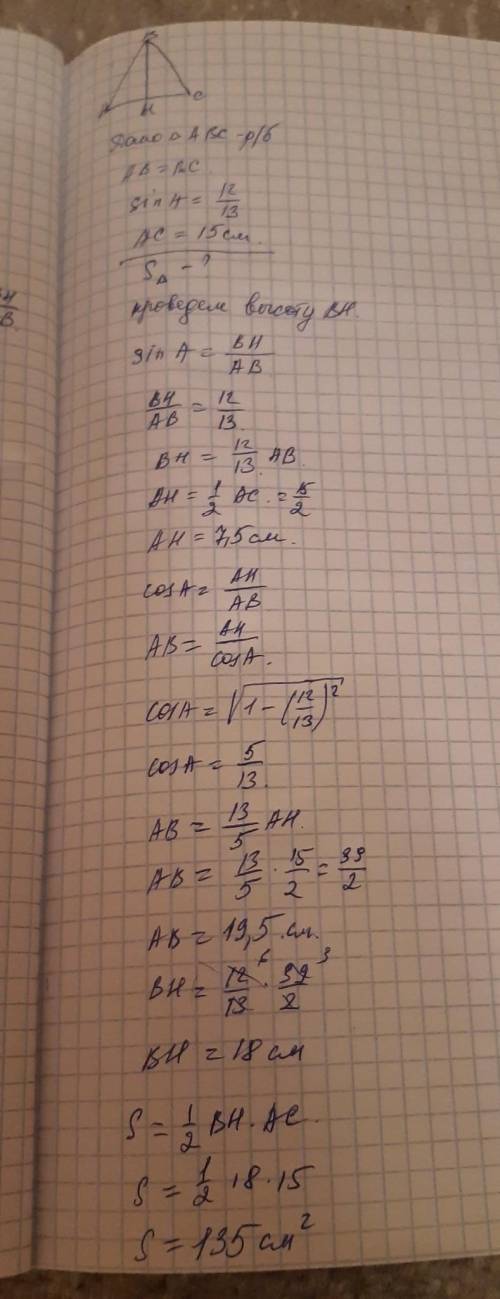 B
A H C
Дано △ ABC - р/б
AB = BC.
sin A = 12/13
AC = 15 см.
S△ - ?
проведем высоту BH.
BH/AB
sin A = BH/AB
BH/AB = 12/13.
BH = 12/13 AB.
AH = 1/2 AC. = 15/2
AH = 7,5 см.
cos A = AH/AB
AB = AH/cos A.
cos A = √(1 - (12/13)²)
cos A = 5/13.
AB = 13/5 AH.
AB = 13/5 · 15/2 = 39/2
AB = 19,5 см.
BH = 12/13 6 · 39/2 3
BH = 18 см
S = 1/2 BH · AC.
S = 1/2 18 · 15
S = 135 см²